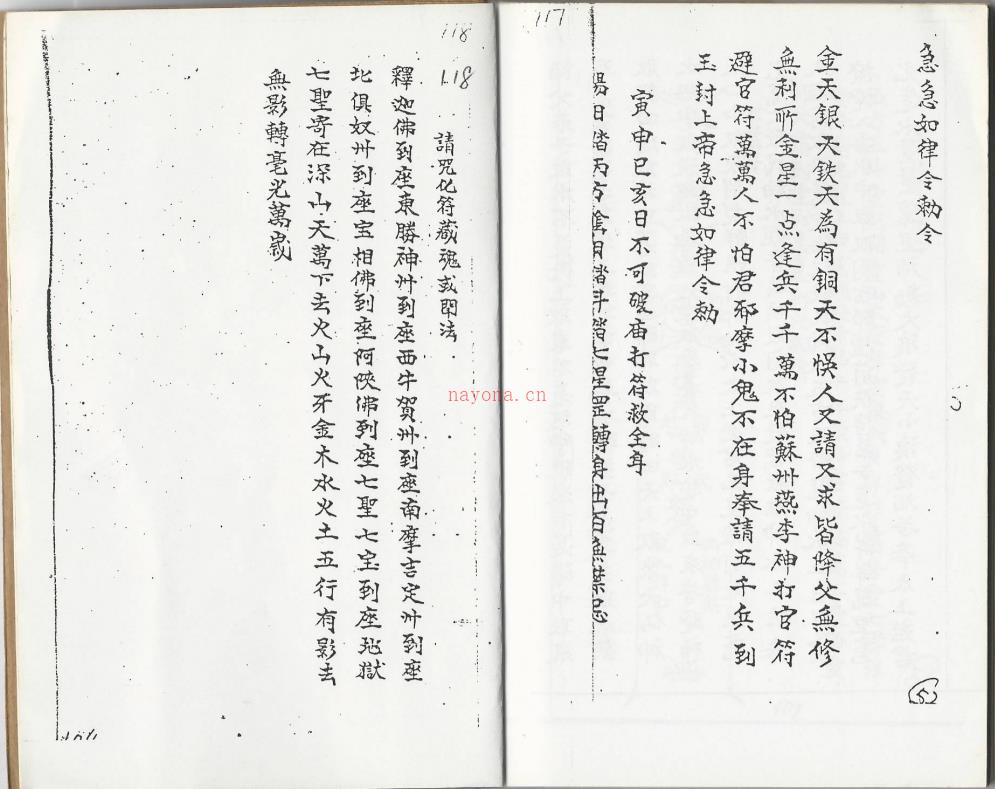 117
急急如律令勅令
金天銀天鉄天為有銅天不悞人又請又求皆降父無修
無利所金星一点逢兵千千萬不怕蘇州燕李神打官符
避官符萬萬人不怕君邪摩小鬼不在身奉請五千兵到
玉封上帝急急如律令勅
寅申巳亥日不可破庙打符救全身
陽日踏丙方陰日踏斗踏七星罡轉身出百無禁忌
118
118
請咒化符藏魂或
法
釋迦佛到座東勝神州到座西牛賀州到座南摩吉定州到座
北俱奴州到座宝相佛到座阿
佛到座七聖七宝到座地獄
七聖寄在深山天萬下去火山火牙金木水火土五行有影去
無影轉毫光萬歲
nayona.cn